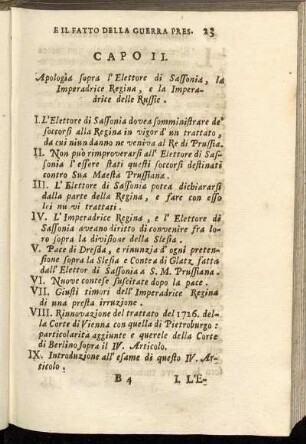 E IL FATTO DELLA GUERRA PRES. 23
CAPO II.
Apologia sopra l'Elettore di Sassonia, la
Imperadrice Regina, e la Impera-
drice delle Russie.
I. L'Elettore di Sassonia dovea somministrare de'
soccorsi alla Regina in vigor d'un trattato,
da cui niun danno ne veniva al Re di Prussia.
II. Non può rimproverarsi all'Elettore di Sas-
sonia l'essere stati questi soccorsi destinati
contro Sua Maestà Prussiana.
III. L'Elettore di Sassonia potea dichiararsi
dalla parte della Regina, e fare con esso
lei nuovi trattati.
IV. L'Imperadrice Regina, e l'Elettore di
Sassonia aveano diritto di convenire fra lo-
ro sopra la divisione della Slesia.
V. Pace di Dresda, e rinunzia d'ogni preten-
sione sopra la Slesia e Contea di Glatz fatta
dall'Elettor di Sassonia a S. M. Prussiana.
VI. Nuove contese suscitate dopo la pace.
VII. Giusti timori dell'Imperadrice Regina
di una presta irruzione.
VIII. Rinnovazione del trattato del 1726. del-
la Corte di Vienna con quella di Pietroburgo:
particolarità aggiunte e querele della Corte
di Berlino sopra il IV. Articolo.
IX. Introduzione all'esame di questo IV. Ar-
ticolo.
B 4 I. L'E-